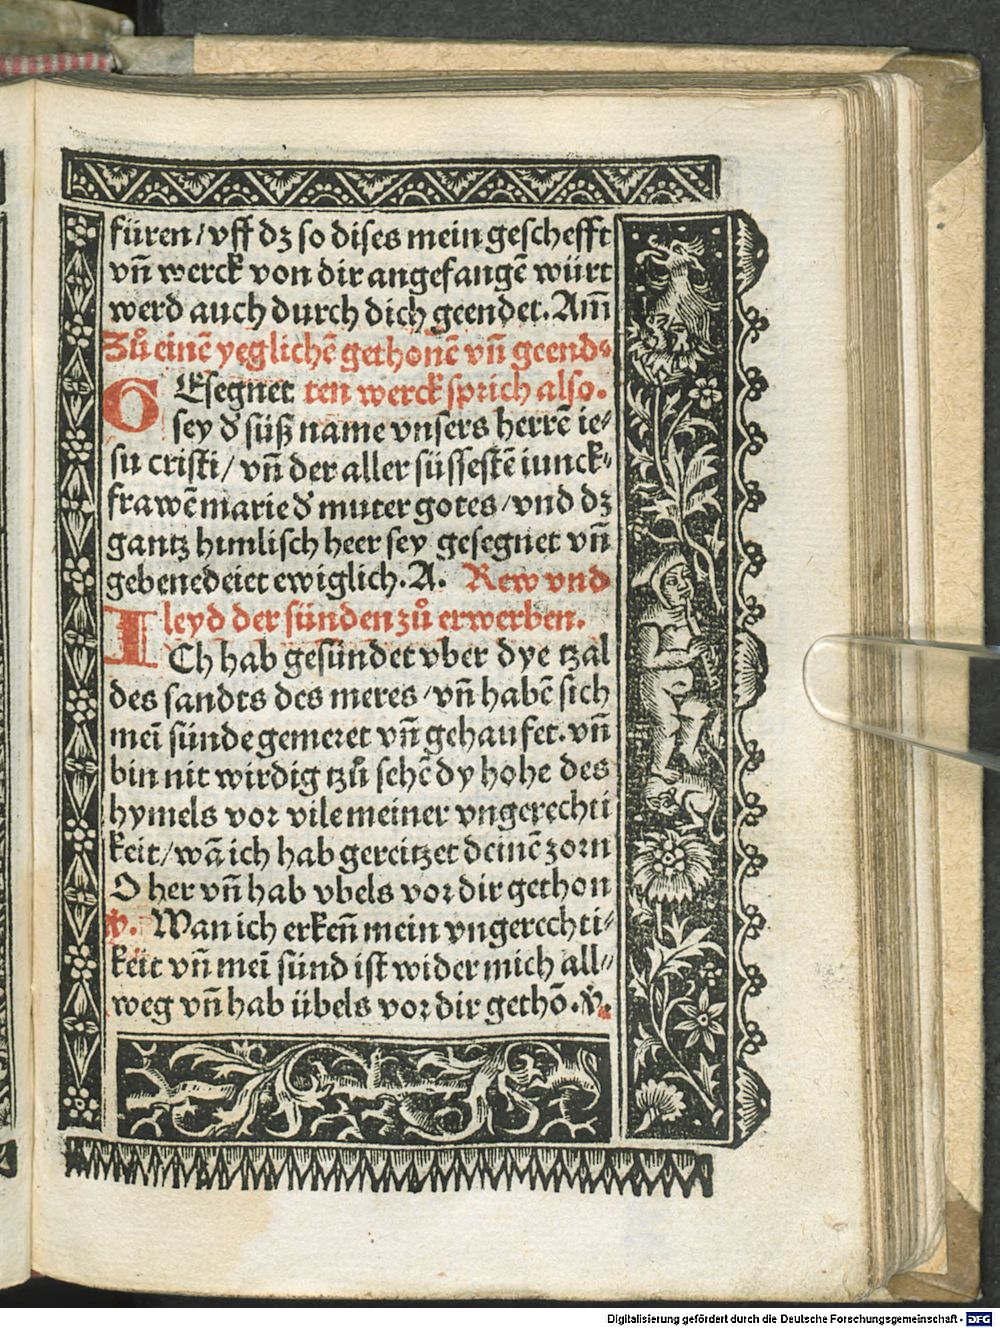 füren/ vff dz so dises mein geschefft
vñ werck von dir angefangē würt
werd auch durch dich geendet. Am̄
Zů einē yeglichē gethonē vñ geend⸗
GEsegnet ten werck sprich also.
sey đ süß name vnsers herrē ie⸗
su cristi/ vñ der aller süssestē iunck⸗
frawē marie đ muter gotes/ vnd dz
gantz himlisch heer sey gesegnet vñ
gebenedeiet ewiglich. A. Rew vnd
leyd der sünden zů erwerben.
ICh hab gesündet vber dye tzal
des sandts des meres/ vñ habē sich
mei᷑ sünde gemeret vñ gehaufet. vñ
bin nit wirdig tzů sehē dy hohe des
hymels vor vile meiner vngerechti
keit/ wā ich hab gereitzet deinē zorn
O her vñ hab vbels vor dir gethon
℣. Wan ich erkeñ mein vngerechti⸗
keit vñ mei᷑ sünd ist wider mich all⸗
weg vñ hab übels vor dir gethō. ℣.
Digitalisierung gefördert durch die Deutsche Forschungsgemeinschaft - DFG